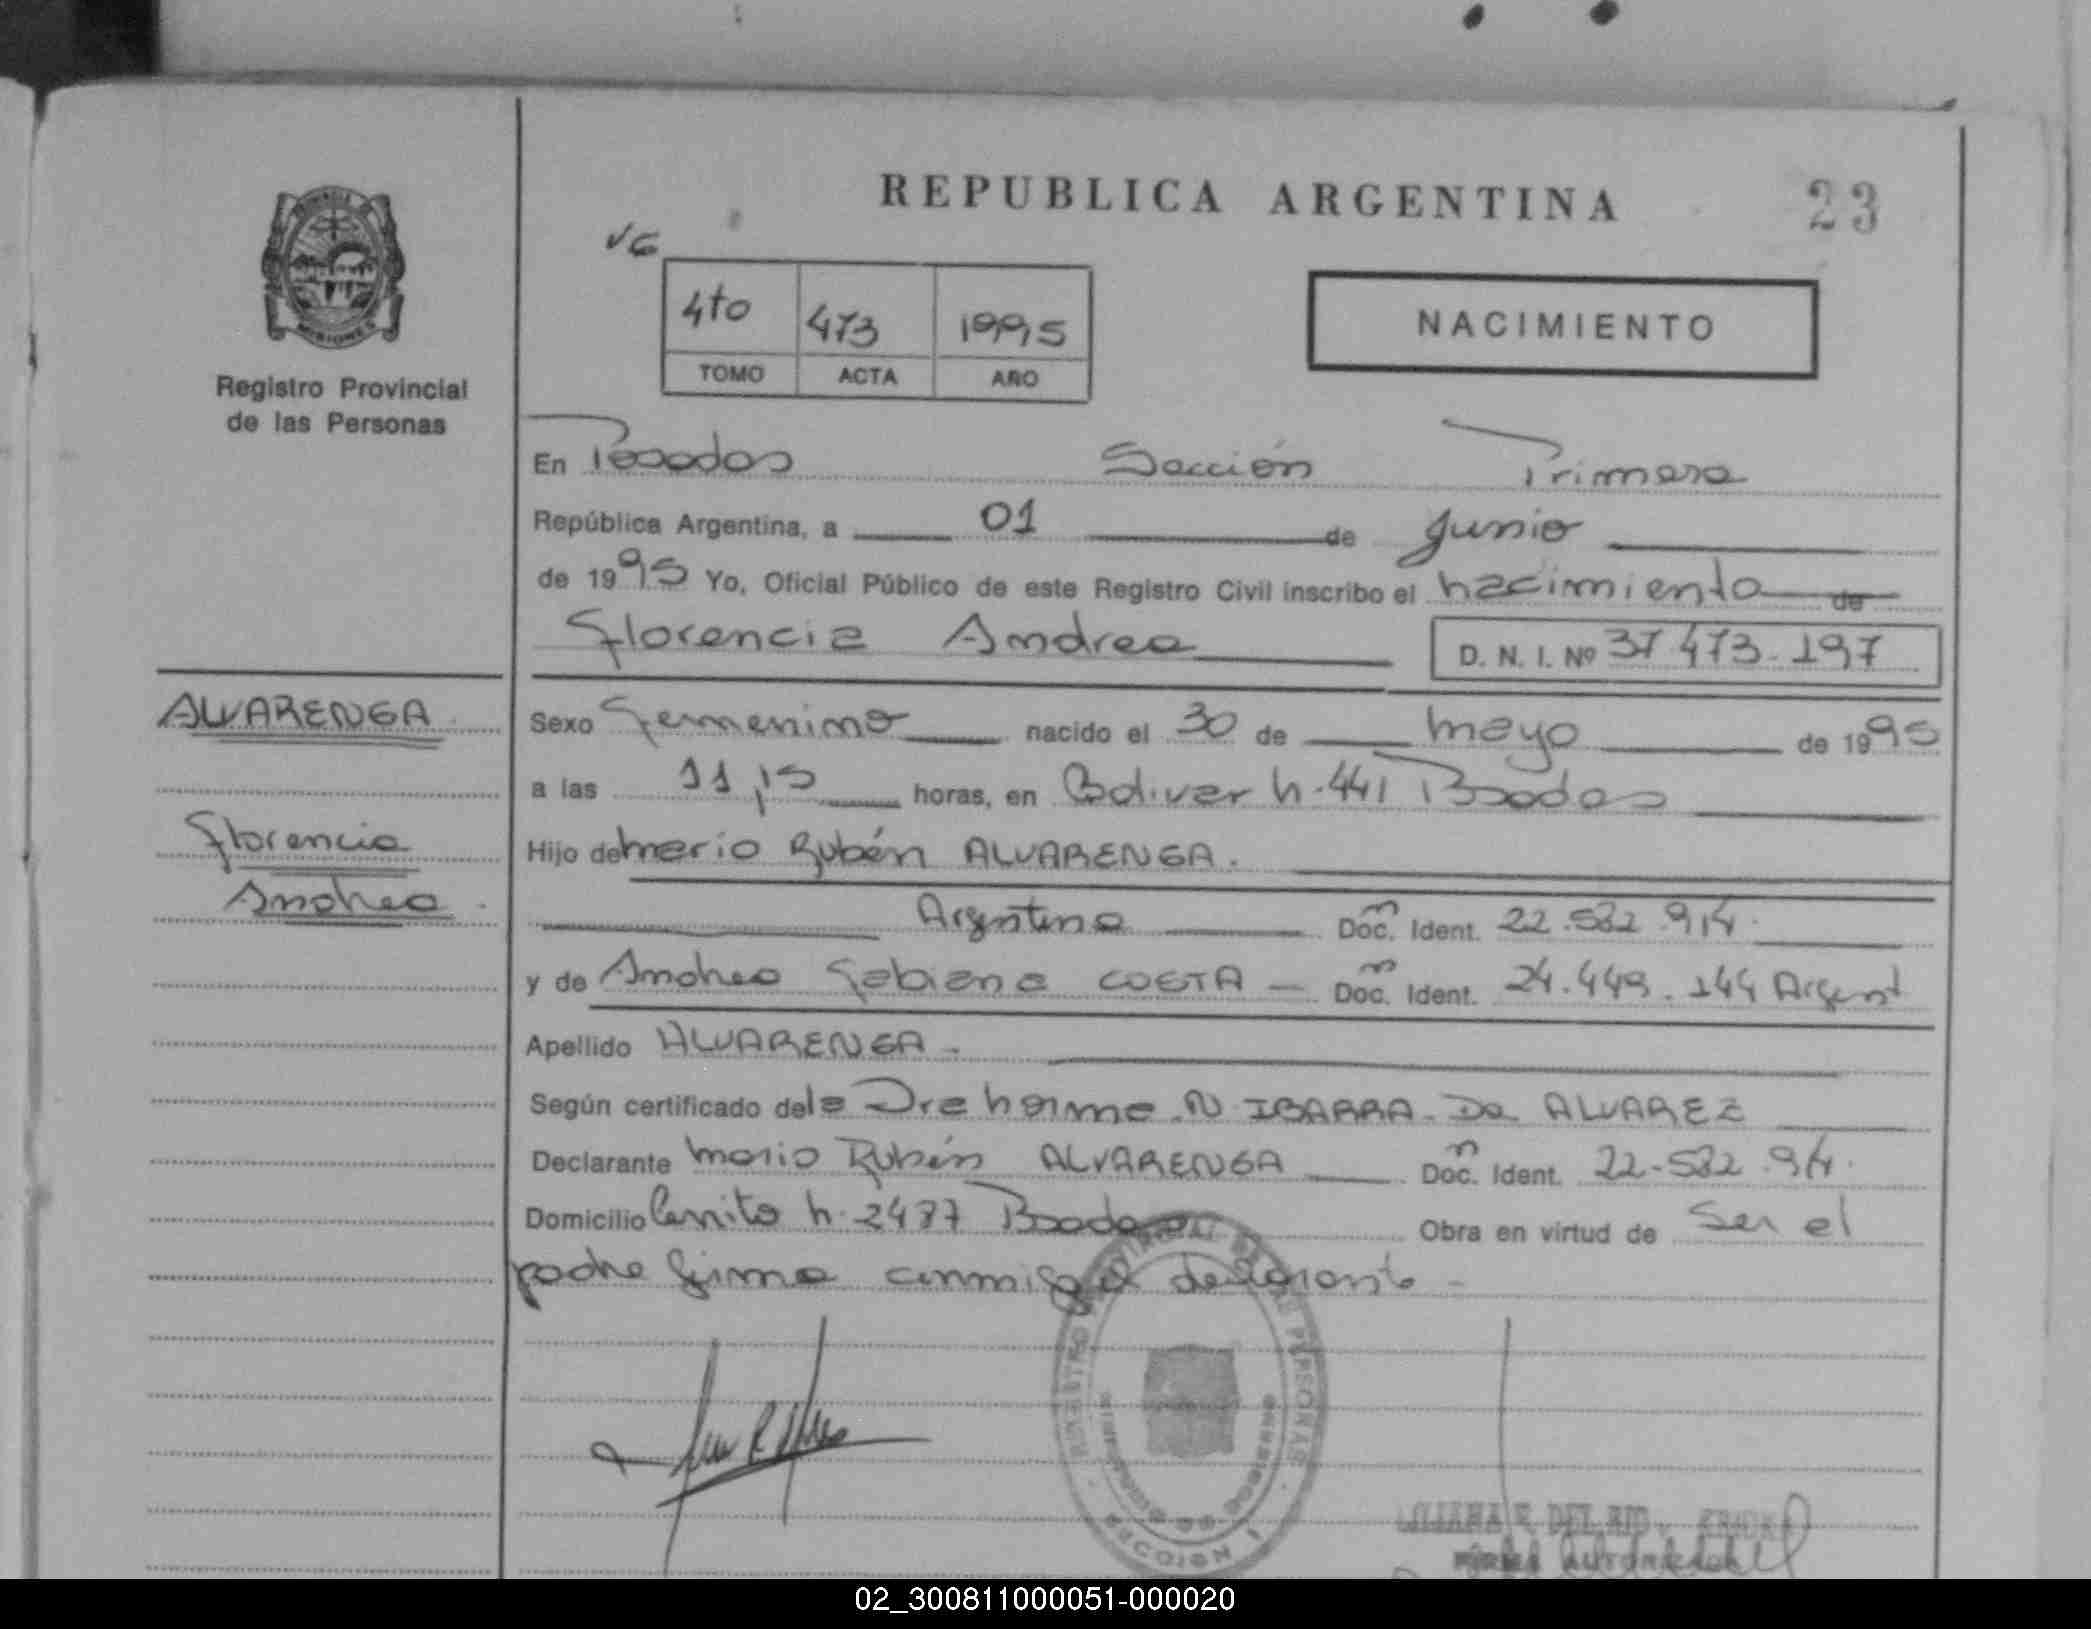 REPUBLICA ARGENTINA
23
VG
4to 473 1995
TOMO ACTA AÑO
NACIMIENTO
Registro Provincial
de las Personas
En Posadas Sección Primera
República Argentina, a 01 de Junio
de 1995 Yo, Oficial Público de este Registro Civil inscribo el nacimiento de
Florencia Andrea
D. N. I. Nº 37 473.197
ALVARENGA
Florencia
Andrea
Sexo Femenino nacido el 30 de mayo de 1995
a las 11,15 horas, en Bolivar n. 441 Posadas
Hijo de Mario Rubén ALVARENGA.
Argentino Doc. Ident. 22.582.914.
y de Andrea Fabiana COSTA - Doc. Ident. 24.449.144 Argent
Apellido ALVARENGA -
Según certificado de la Dra Norma N. IBARRA De ALVAREZ
Declarante Mario Rubén ALVARENGA Doc. Ident. 22.582.914.
Domicilio Cerrito n. 2437 Posadas Obra en virtud de Ser el
padre firma conmigo el declarante -
REGISTRO PROVINCIAL DE LAS PERSONAS
SECCION 1
LILIANA E. DEL RIO
FIRMA AUTORIZADA
02_300811000051-000020